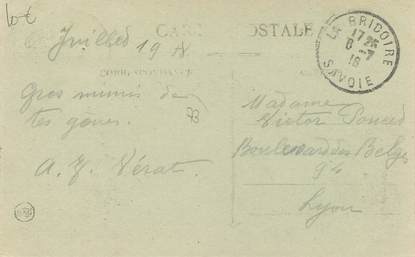 10€
CARTE POSTALE
Juillet 1918
CORRESPONDANCE
LA BRIDOIRE
17 25
6 -7
18
SAVOIE
Gros mimis de
tes
A. T. Vérat
Madame
Victor
Boulevard des Belges
94
Lyon